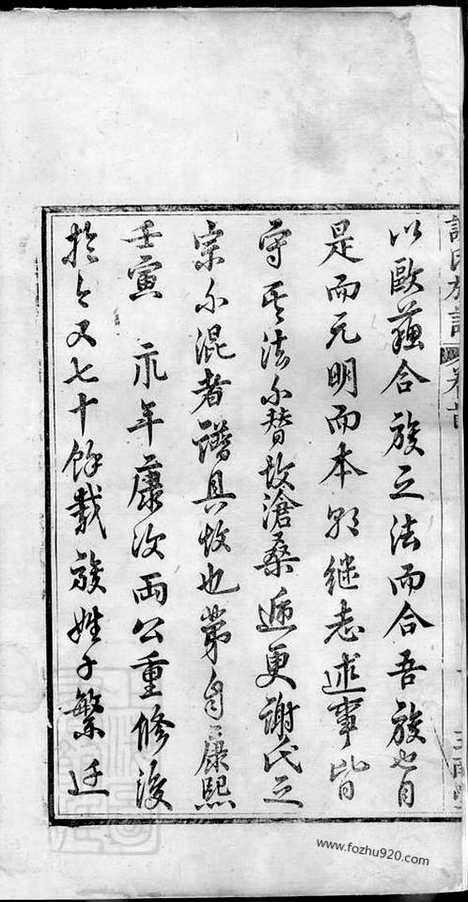 以歐蘇合族之法而合吾族也自
是而元明而本朝继志述事皆
守其法不替故滄桑遞更謝氏之
宗不混者譜具故也第自康熙
壬寅 永年康次兩公重修後
於今又七十餘載族姓子繁迁
www.fozhu920.com